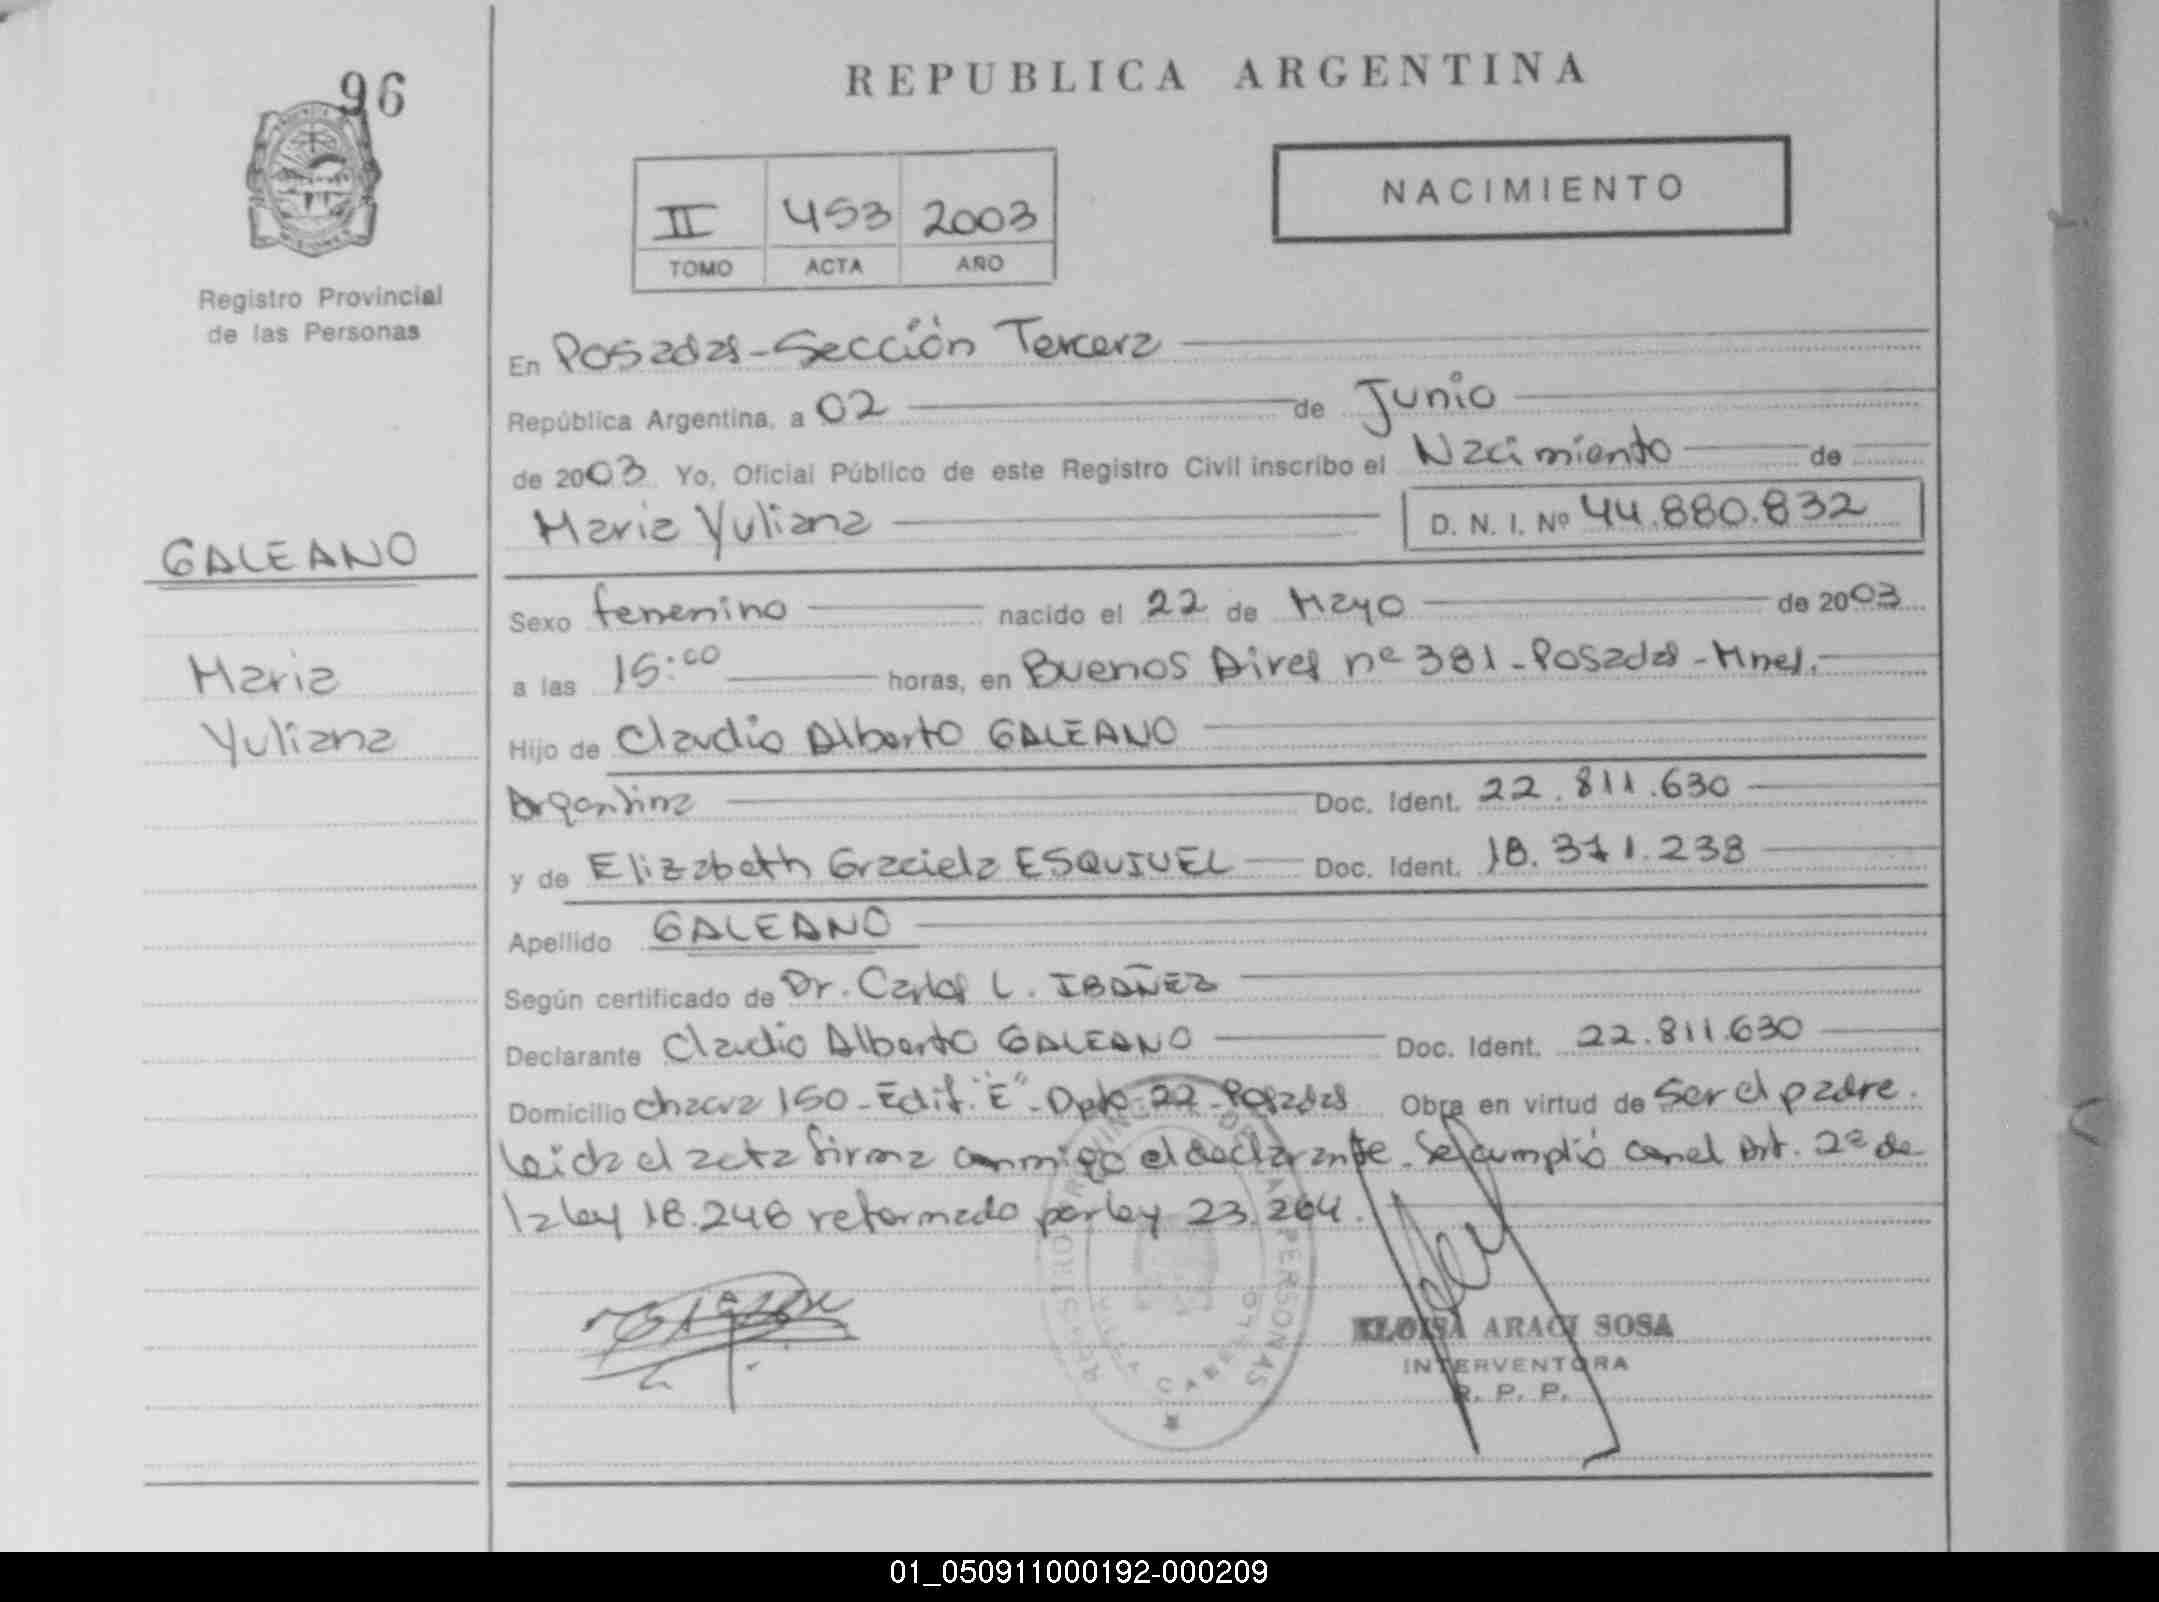 96
REPUBLICA ARGENTINA
NACIMIENTO
II 453 2003
TOMO ACTA AÑO
Registro Provincial
de las Personas
En Posadas - Sección Tercera
República Argentina, a 02 de Junio
de 2003 Yo, Oficial Público de este Registro Civil inscribo el Nacimiento de
Maria Yuliana D. N. I. Nº 44.880.832
GALEANO
Maria
Yuliana
Sexo femenino nacido el 22 de Mayo de 2003
a las 15:00 horas, en Buenos Aires nº 381 - Posadas - Mnes.
Hijo de Claudio Alberto GALEANO
Argentina Doc. Ident. 22.811.630
y de Elizabeth Graciela ESQUIVEL Doc. Ident. 18.371.238
Apellido GALEANO
Según certificado de Dr. Carlos L. IBAÑEZ
Declarante Claudio Alberto GALEANO Doc. Ident. 22.811.630
Domicilio chacra 150 - Edif. "E" - Dpto 22 - Posadas Obra en virtud de ser el padre.
Leida el acta firma conmigo el declarante. Se cumplió con el Art. 2º de
la ley 18.248 reformado por ley 23.264.
REGISTRO PROVINCIAL DE LAS PERSONAS
VILLA CABELLO
ELOISA ARACI SOSA
INTERVENTORA
R. P. P.
01_050911000192-000209